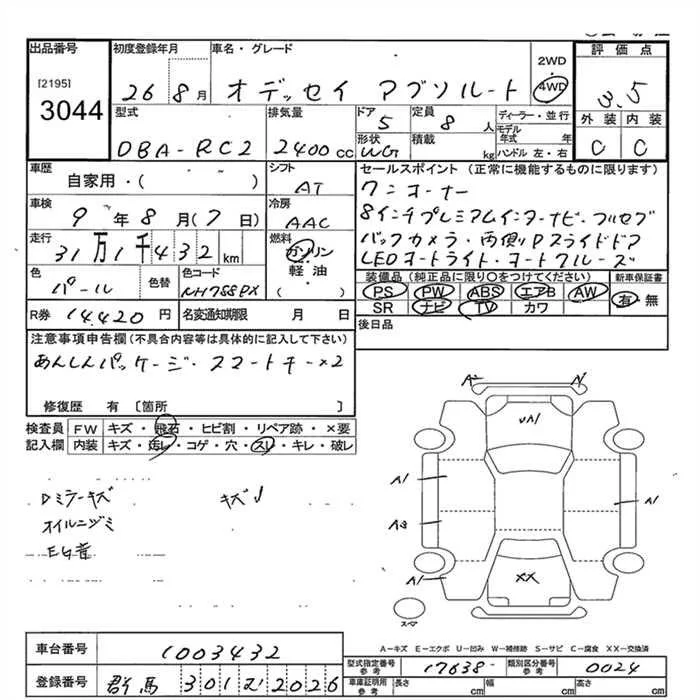 出品番号 初度登録年月 車名・グレード 2WD・4WD 評価点
[2195]
3044
26 8月 オデッセイ アブソルート 3.5
外装 内装
C C
型式 排気量 ドア 定員 ディーラー・並行
DBA-RC2 2400cc 5 8人 モデル年式 年
形状 積載 kg ハンドル 左・右
WG
車歴 シフト
自家用・( ) AT
セールスポイント(正常に機能するものに限ります)
ワンオーナー
8インチプレミアムインターナビ・フルセグ
バックカメラ・両側Pスライドドア
LEDオートライト・オートクルーズ
車検 冷房
9年8月(7日) AAC
走行 燃料
31万1千432km ガソリン・軽油・( )
色 色替 色コード
パール NH788PX
装備品(純正品に限り○をつけてください) 新車保証書
PS PW ABS エアB AW 有・無
SR ナビ TV カワ
R券 14,420円 名変通知期限 月 日
後日品
注意事項申告欄(不具合内容等は具体的に記入して下さい)
あんしんパッケージ・スマートキー×2
修復歴 有 [箇所 ]
検査員記入欄 FW キズ・飛石・ヒビ割・リペア跡・×要
内装 キズ・汚レ・コゲ・穴・スレ・キレ・破レ
Dミラーキズ キズ
オイルニジミ
EG音
A2 A1
UA1
A1 A1
A3
A1
XX
スペア
A-キズ E-エクボ U-凹み W-補修跡 S-サビ C-腐食 XX-交換済
車台番号 1003432
型式指定番号 参考 17638- 類別区分番号 参考 0024
登録番号 群馬 301 む 2026
車庫証明用 参考 長さ cm 幅 cm 高さ cm